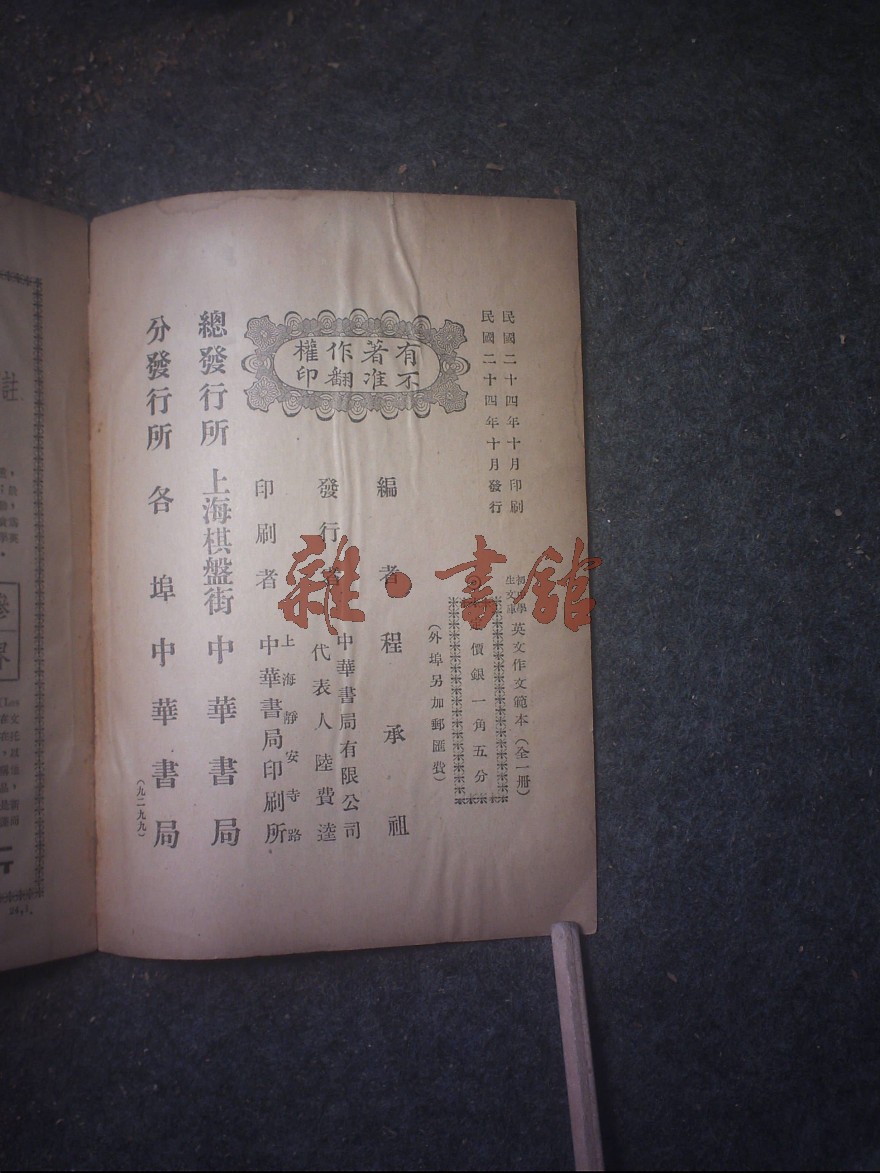 民國二十四年十月印刷
民國二十四年十月發行
英文作文範本（全一册）
價銀一角五分
（外埠另加郵匯費）
有著作權
不准翻印
編者 程承祖
發行者
中華書局有限公司
代表人 陸費逵
印刷者
上海靜安寺路
中華書局印刷所
總發行所 上海棋盤街 中華書局
分發行所 各埠 中華書局
（九二九九）
雜·書館
註
24,1,